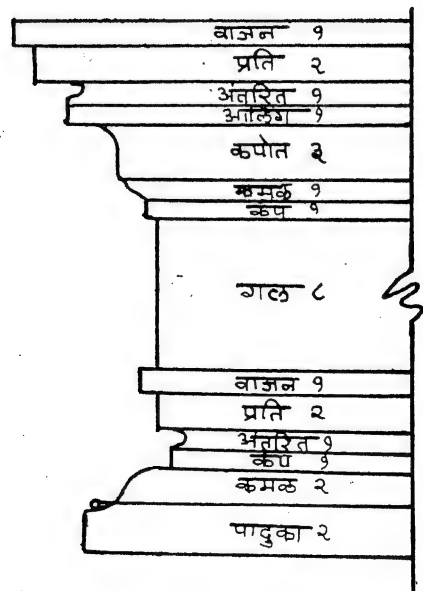 वाजन १
प्रति २
अंतरित १
आलिंग १
कपोत ३
कमळ १
कंप १
गल ८
वाजन १
प्रति २
अंतरित १
कंप १
कमळ २
पादुका २